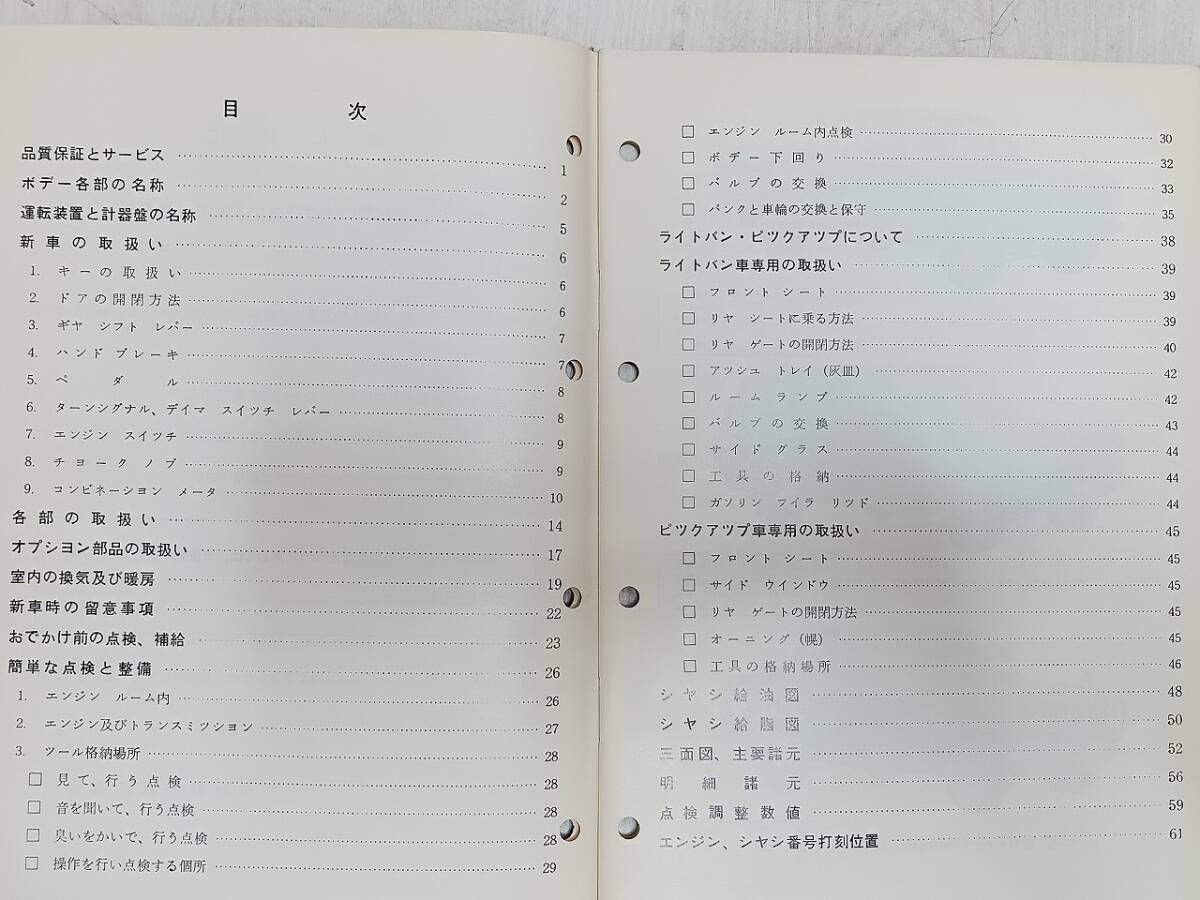 目次
品質保証とサービス 1
ボデー各部の名称 2
運転装置と計器盤の名称 5
新車の取扱い 6
1. キーの取扱い 6
2. ドアの開閉方法 6
3. ギヤ シフト レバー 7
4. ハンド ブレーキ 7
5. ペダル 8
6. ターンシグナル、デイマ スイツチ レバー 8
7. エンジン スイツチ 9
8. チヨーク ノブ 9
9. コンビネーシヨン メータ 10
各部の取扱い 14
オプシヨン部品の取扱い 17
室内の換気及び暖房 19
新車時の留意事項 22
おでかけ前の点検、補給 23
簡単な点検と整備 26
1. エンジン ルーム内 26
2. エンジン及びトランスミツシヨン 27
3. ツール格納場所 28
□ 見て、行う点検 28
□ 音を聞いて、行う点検 28
□ 臭いをかいで、行う点検 28
□ 操作を行い点検する個所 29
□ エンジン ルーム内点検 30
□ ボデー下回り 32
□ バルブの交換 33
□ パンクと車輪の交換と保守 35
ライトバン・ピツクアツプについて 38
ライトバン車専用の取扱い 39
□ フロント シート 39
□ リヤ シートに乗る方法 39
□ リヤ ゲートの開閉方法 40
□ アッシュ トレイ (灰皿) 42
□ ルーム ランプ 42
□ バルブの交換 43
□ サイド グラス 44
□ 工具の格納 44
□ ガソリン フイラ リツド 44
ピツクアツプ車専用の取扱い 45
□ フロント シート 45
□ サイド ウインドウ 45
□ リヤ ゲートの開閉方法 45
□ オーニング (幌) 45
□ 工具の格納場所 46
シヤシ給油図 48
シヤシ給脂図 50
三面図、主要諸元 52
明細諸元 56
点検調整数値 59
エンジン、シヤシ番号打刻位置 61